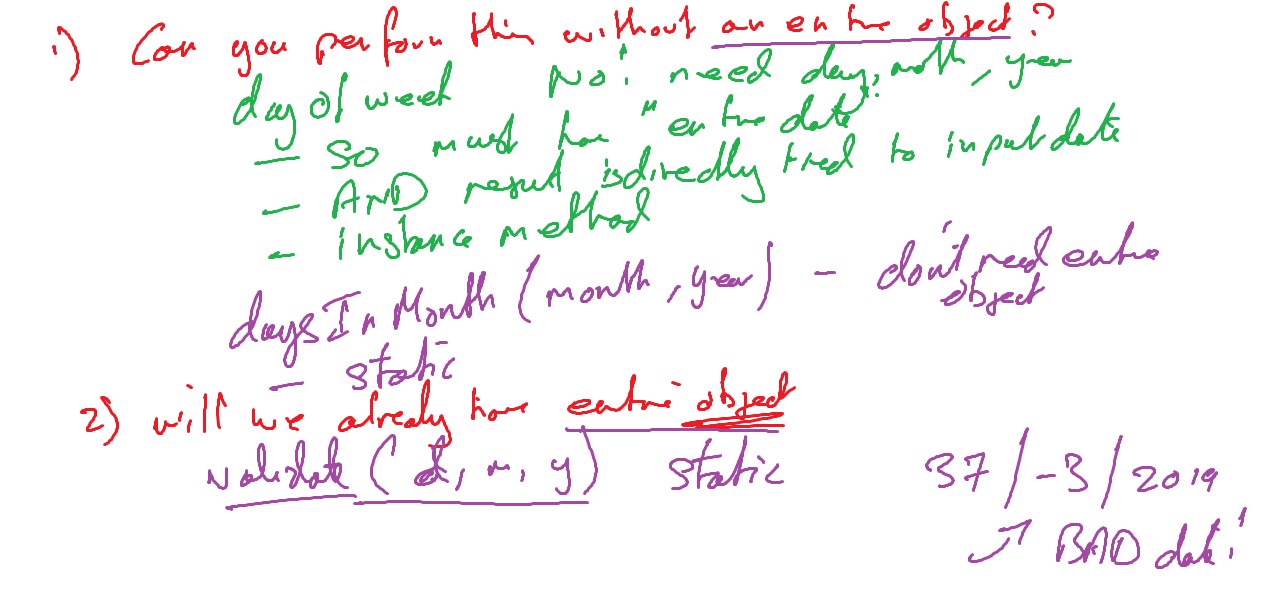 1) Can you perform this without an entire object?
day of week No! need day, month, year
- so must have "entire date"
- AND result is directly tied to input date
- instance method
daysInMonth (month, year) - don't need entire object
- static
2) will we already have entire object
validate (d, m, y) static 37/-3/2019
BAD date!